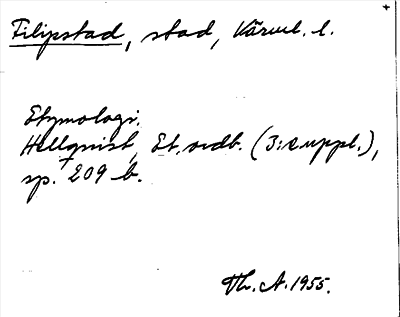 Filipstad, stad, Värml. l.
Etymologi.
Hellqvist, Et. ordb. (3:e uppl.),
sp. 209 b.
Th. A. 1955.